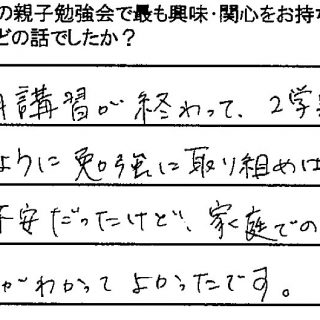 の親子勉強会で最も興味・関心をお持
どの話でしたか？
講習が終わって、2学
ように勉強に取り組めば
不安だったけど、家庭での
がわかってよかったです。